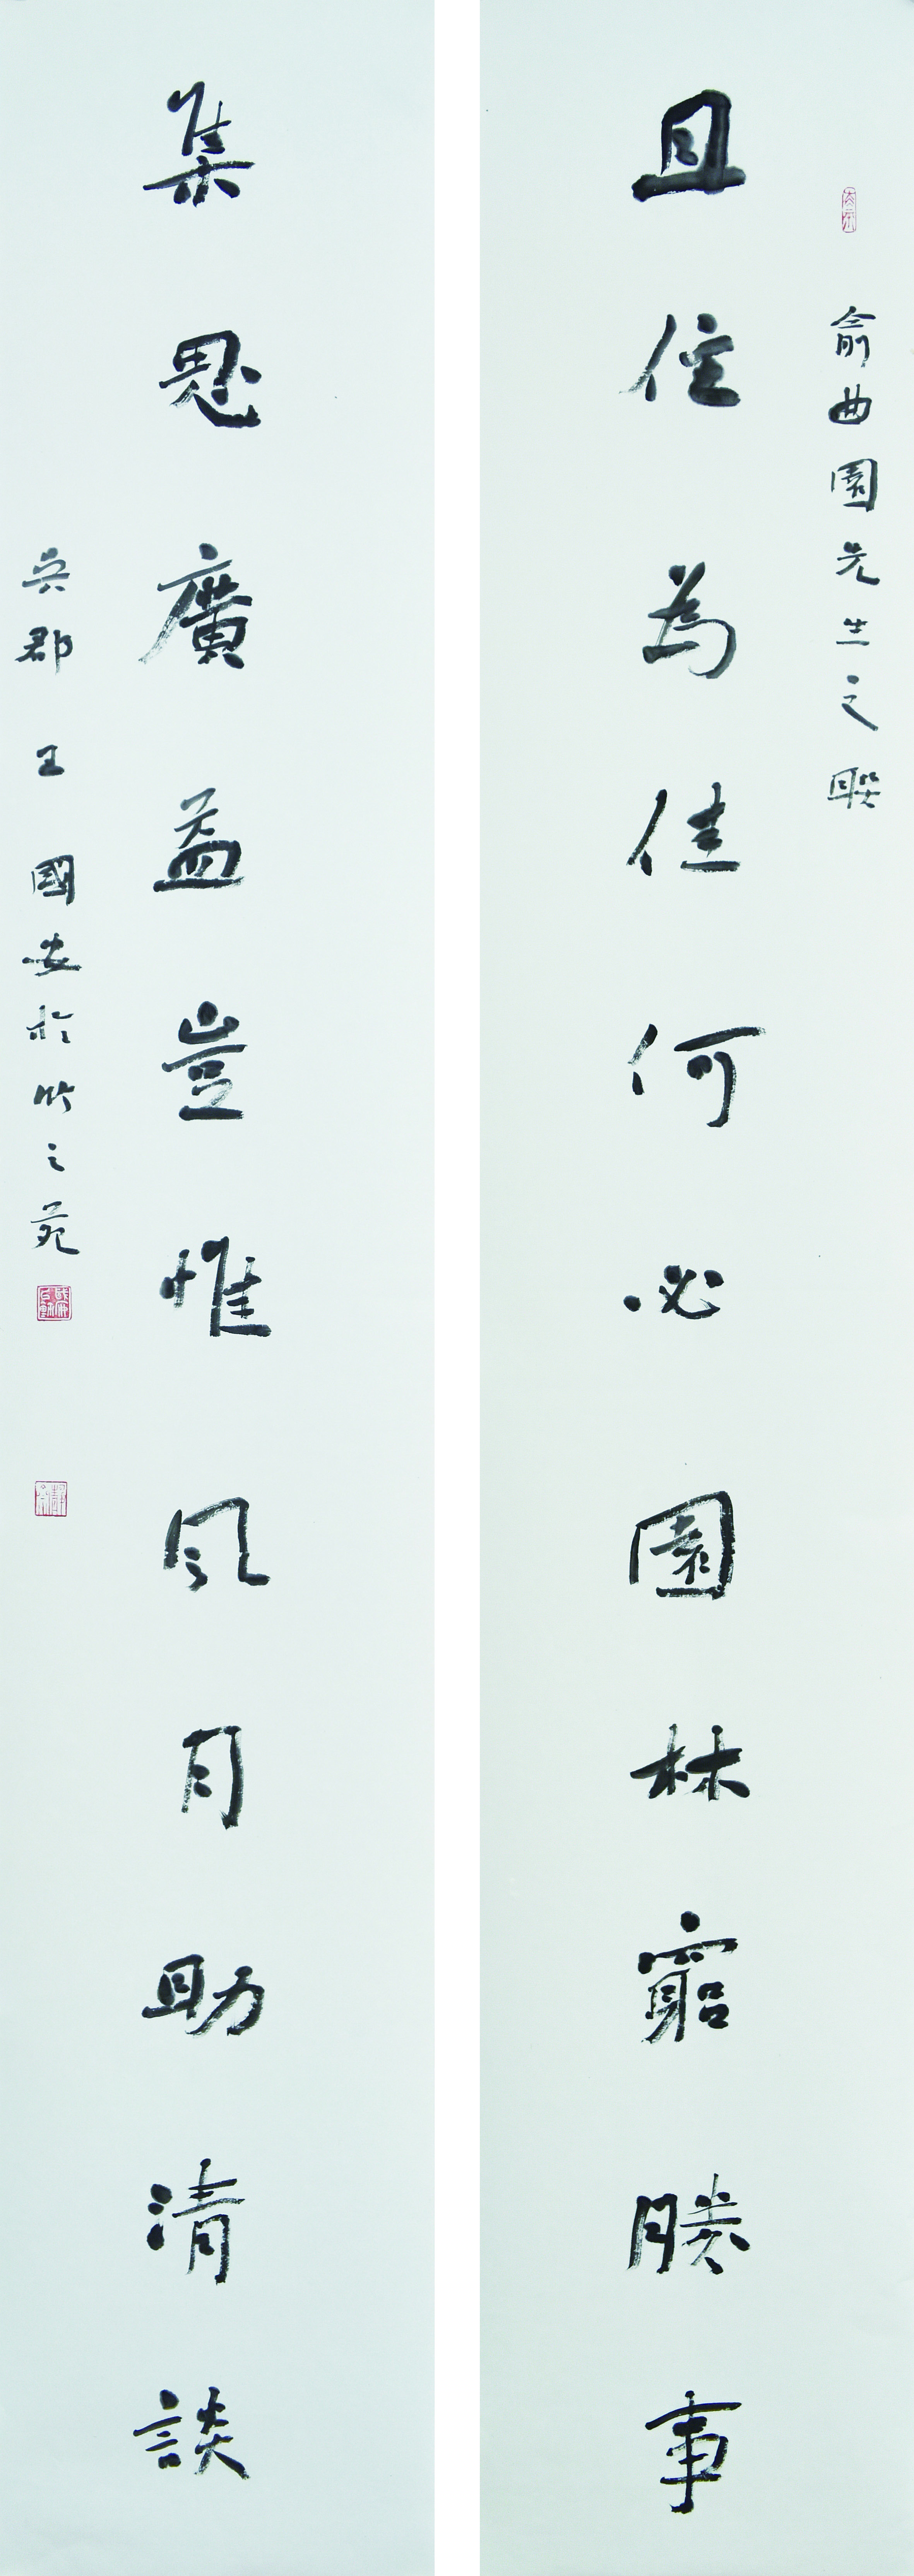 俞曲園先生之聯
且住為佳何必園林窮勝事
集思廣益豈惟風月助清談
吳郡王國安於竹之苑